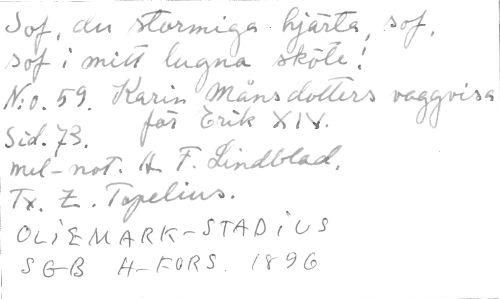 Sof, du stormiga hjärta, sof,
sof i mitt lugna sköte!
N:o. 59. Karin Månsdotters vaggvisa
för Erik XIV.
Sid. 73.
mel-not. A F. Lindblad.
Tx. Z. Topelius.
OLIEMARK-STADIUS
SGB H-FORS. 1896